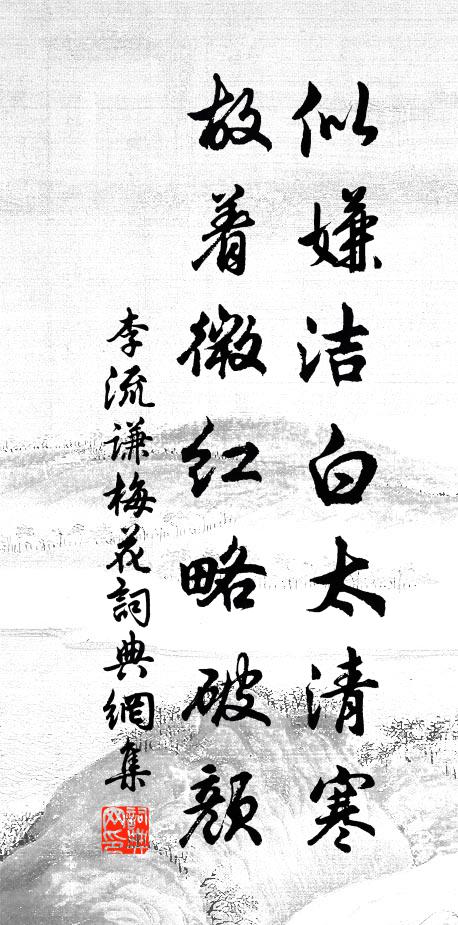 似嫌洁白太清寒
故着微红略破颜
李流谦梅花詞典網集